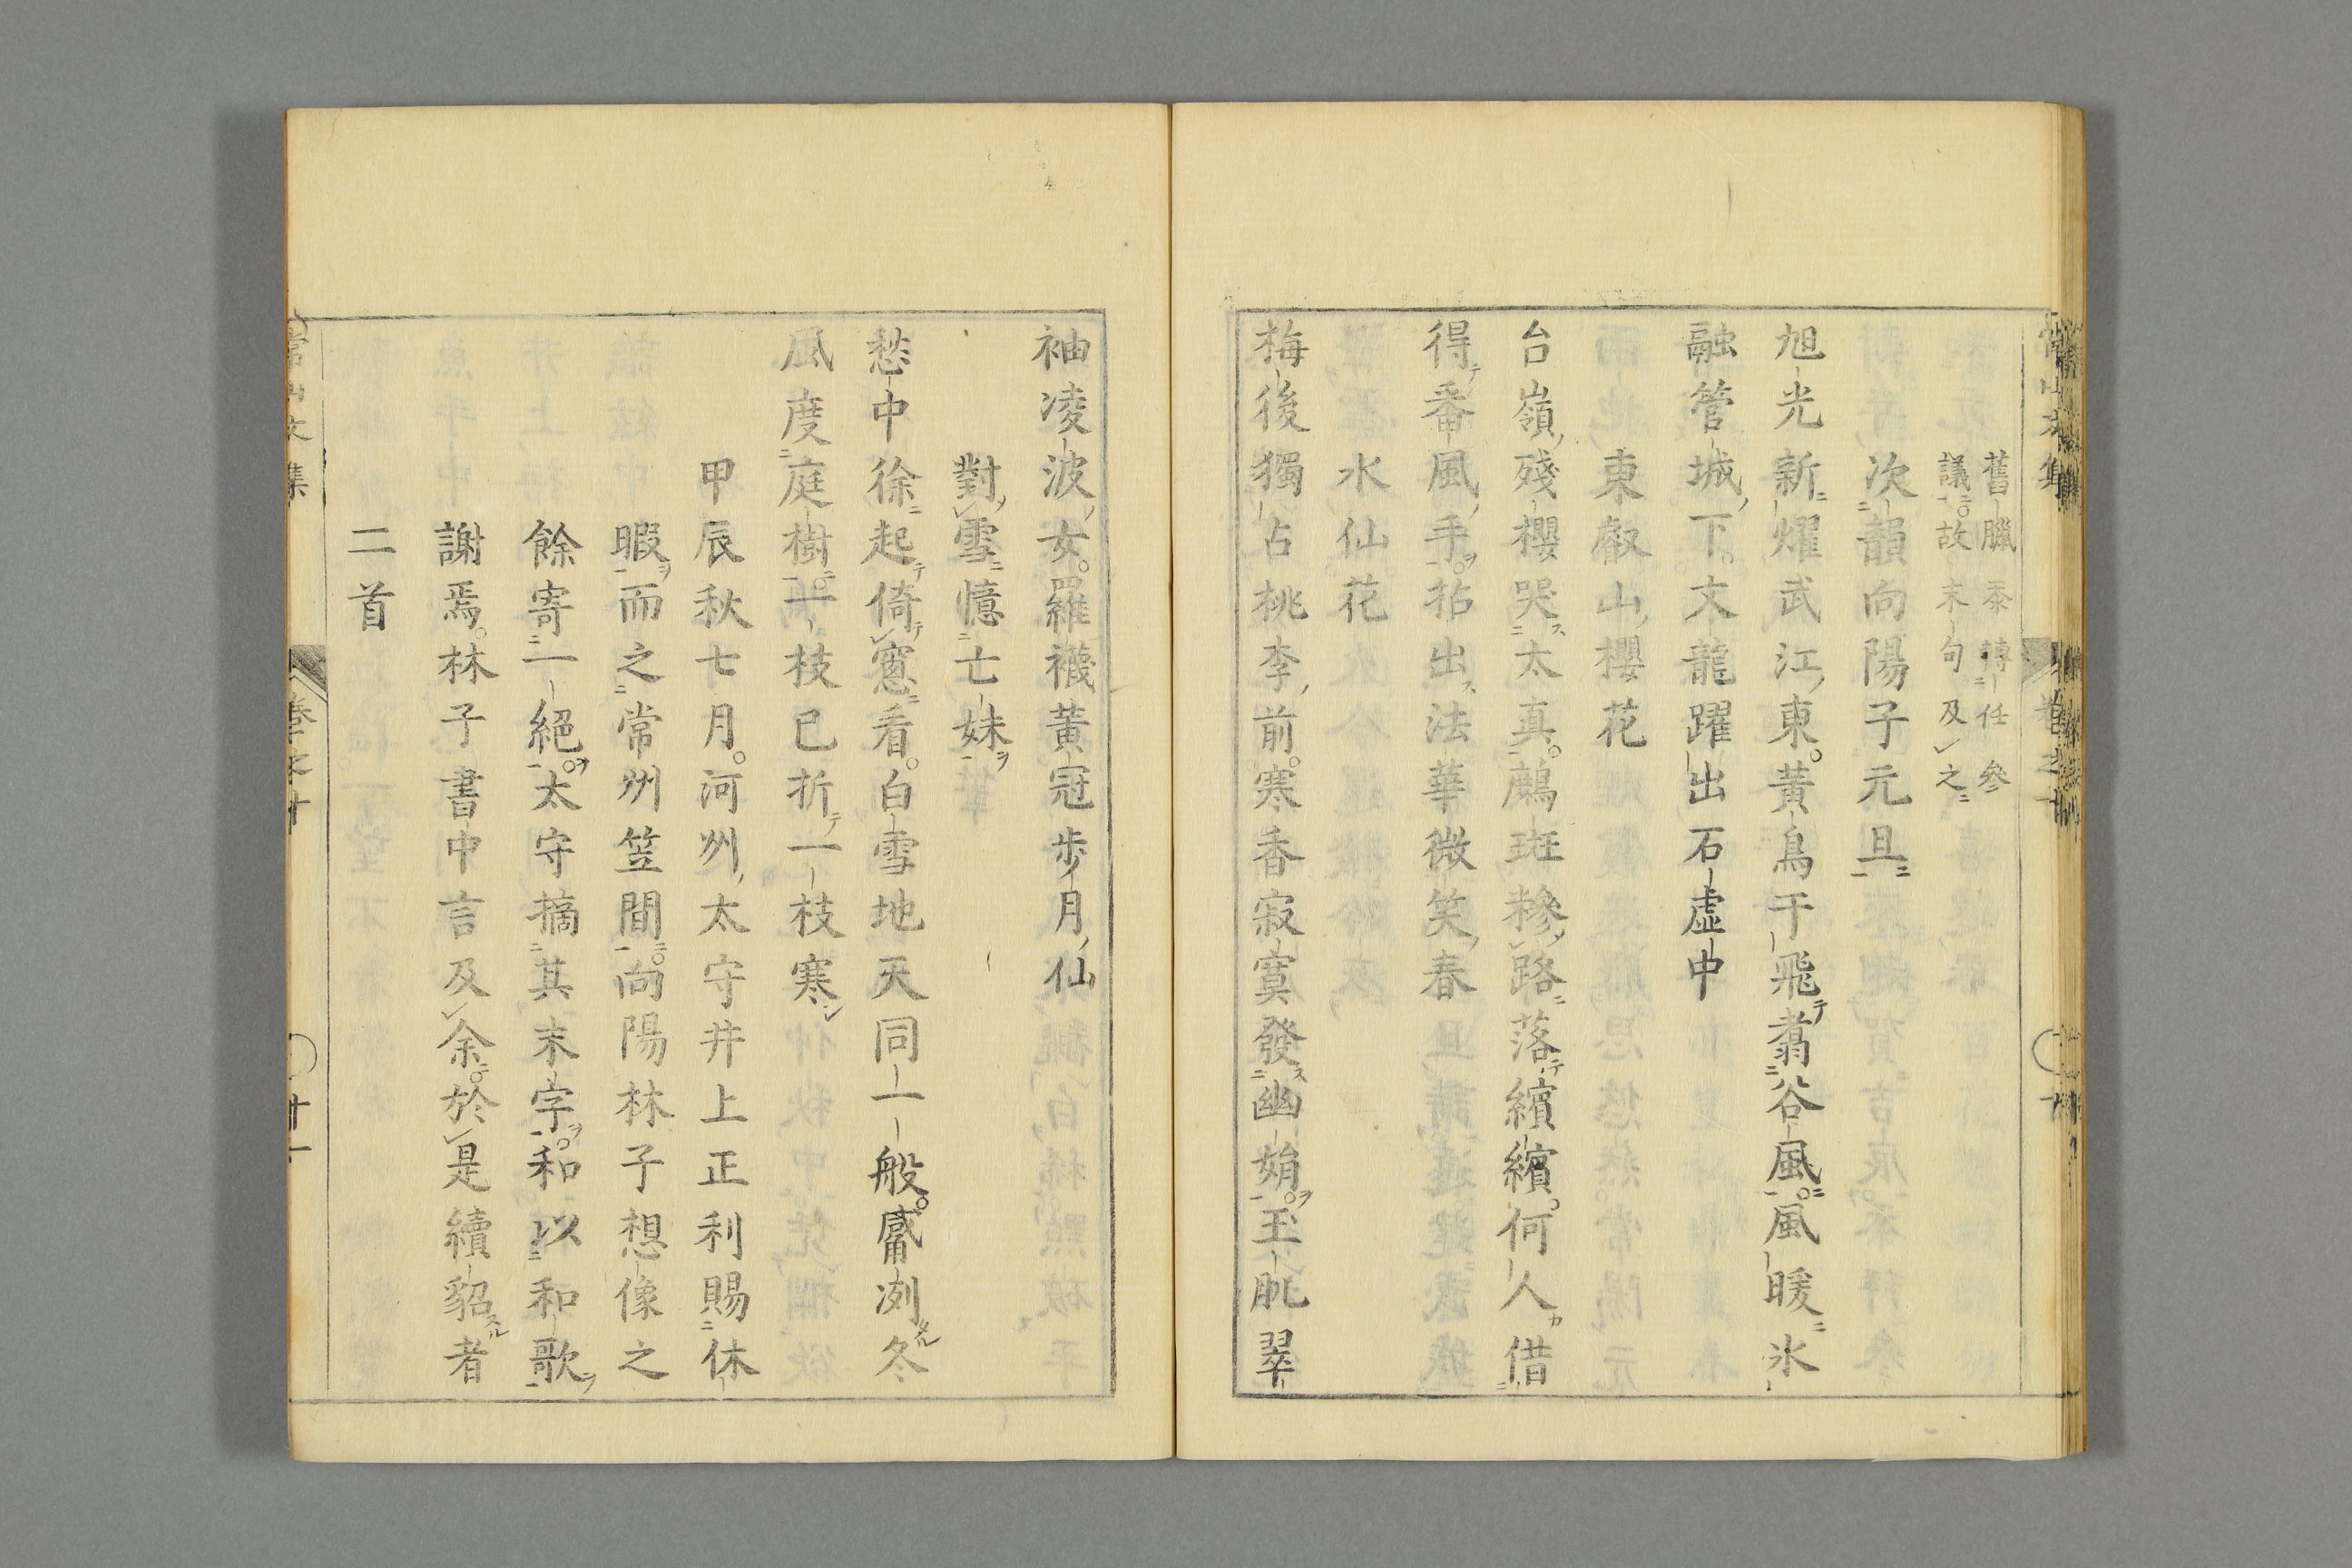 舊臘忝轉任參
議故末句及之
次韻向陽子元旦
旭光新燿武江東黃鳥干飛翥谷風風暖氷
融管城下文龍躍出石虛中
東叡山櫻花
台嶺殘櫻哭太真鷓斑糝路落繽繽何人借
得番風手拈出法華微笑春
水仙花
梅後獨占桃李前寒香寂寞發幽娟玉肌翠
袖凌波女羅襪黃冠步月仙
對雪憶亡妹
愁中徐起倚窻看白雪地天同一般觱冽冬
風度庭樹一枝已折一枝寒
甲辰秋七月河州太守井上正利賜休
暇而之常州笠間向陽林子想像之
餘寄一絕太守摘其末字和以和歌
謝焉林子書中言及余於是續貂者
二首
常山文集
卷之十
廿一